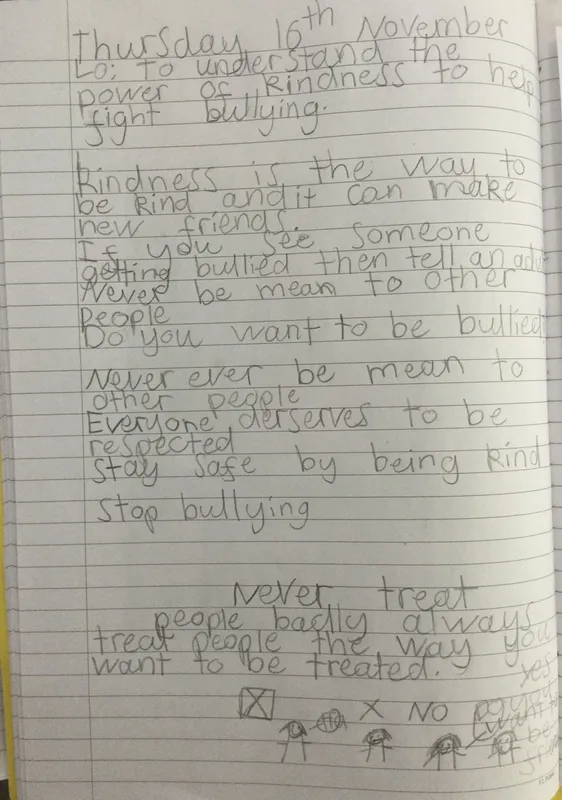 Thursday 16th November
Lo: To understand the
power of kindness to help
fight bullying.
Kindness is the way to
be kind and it can make
new friends.
If you see someone
getting bullied then tell an adu
Never be mean to other
People
Do you want to be bullied
Never ever be mean to
other people
Everyone derserves to be
respected
Stay safe by being kind
Stop bullying
Never treat
people badly always
treat people the way you
want to be treated.
yes
X NO Do you
want to
be
frie